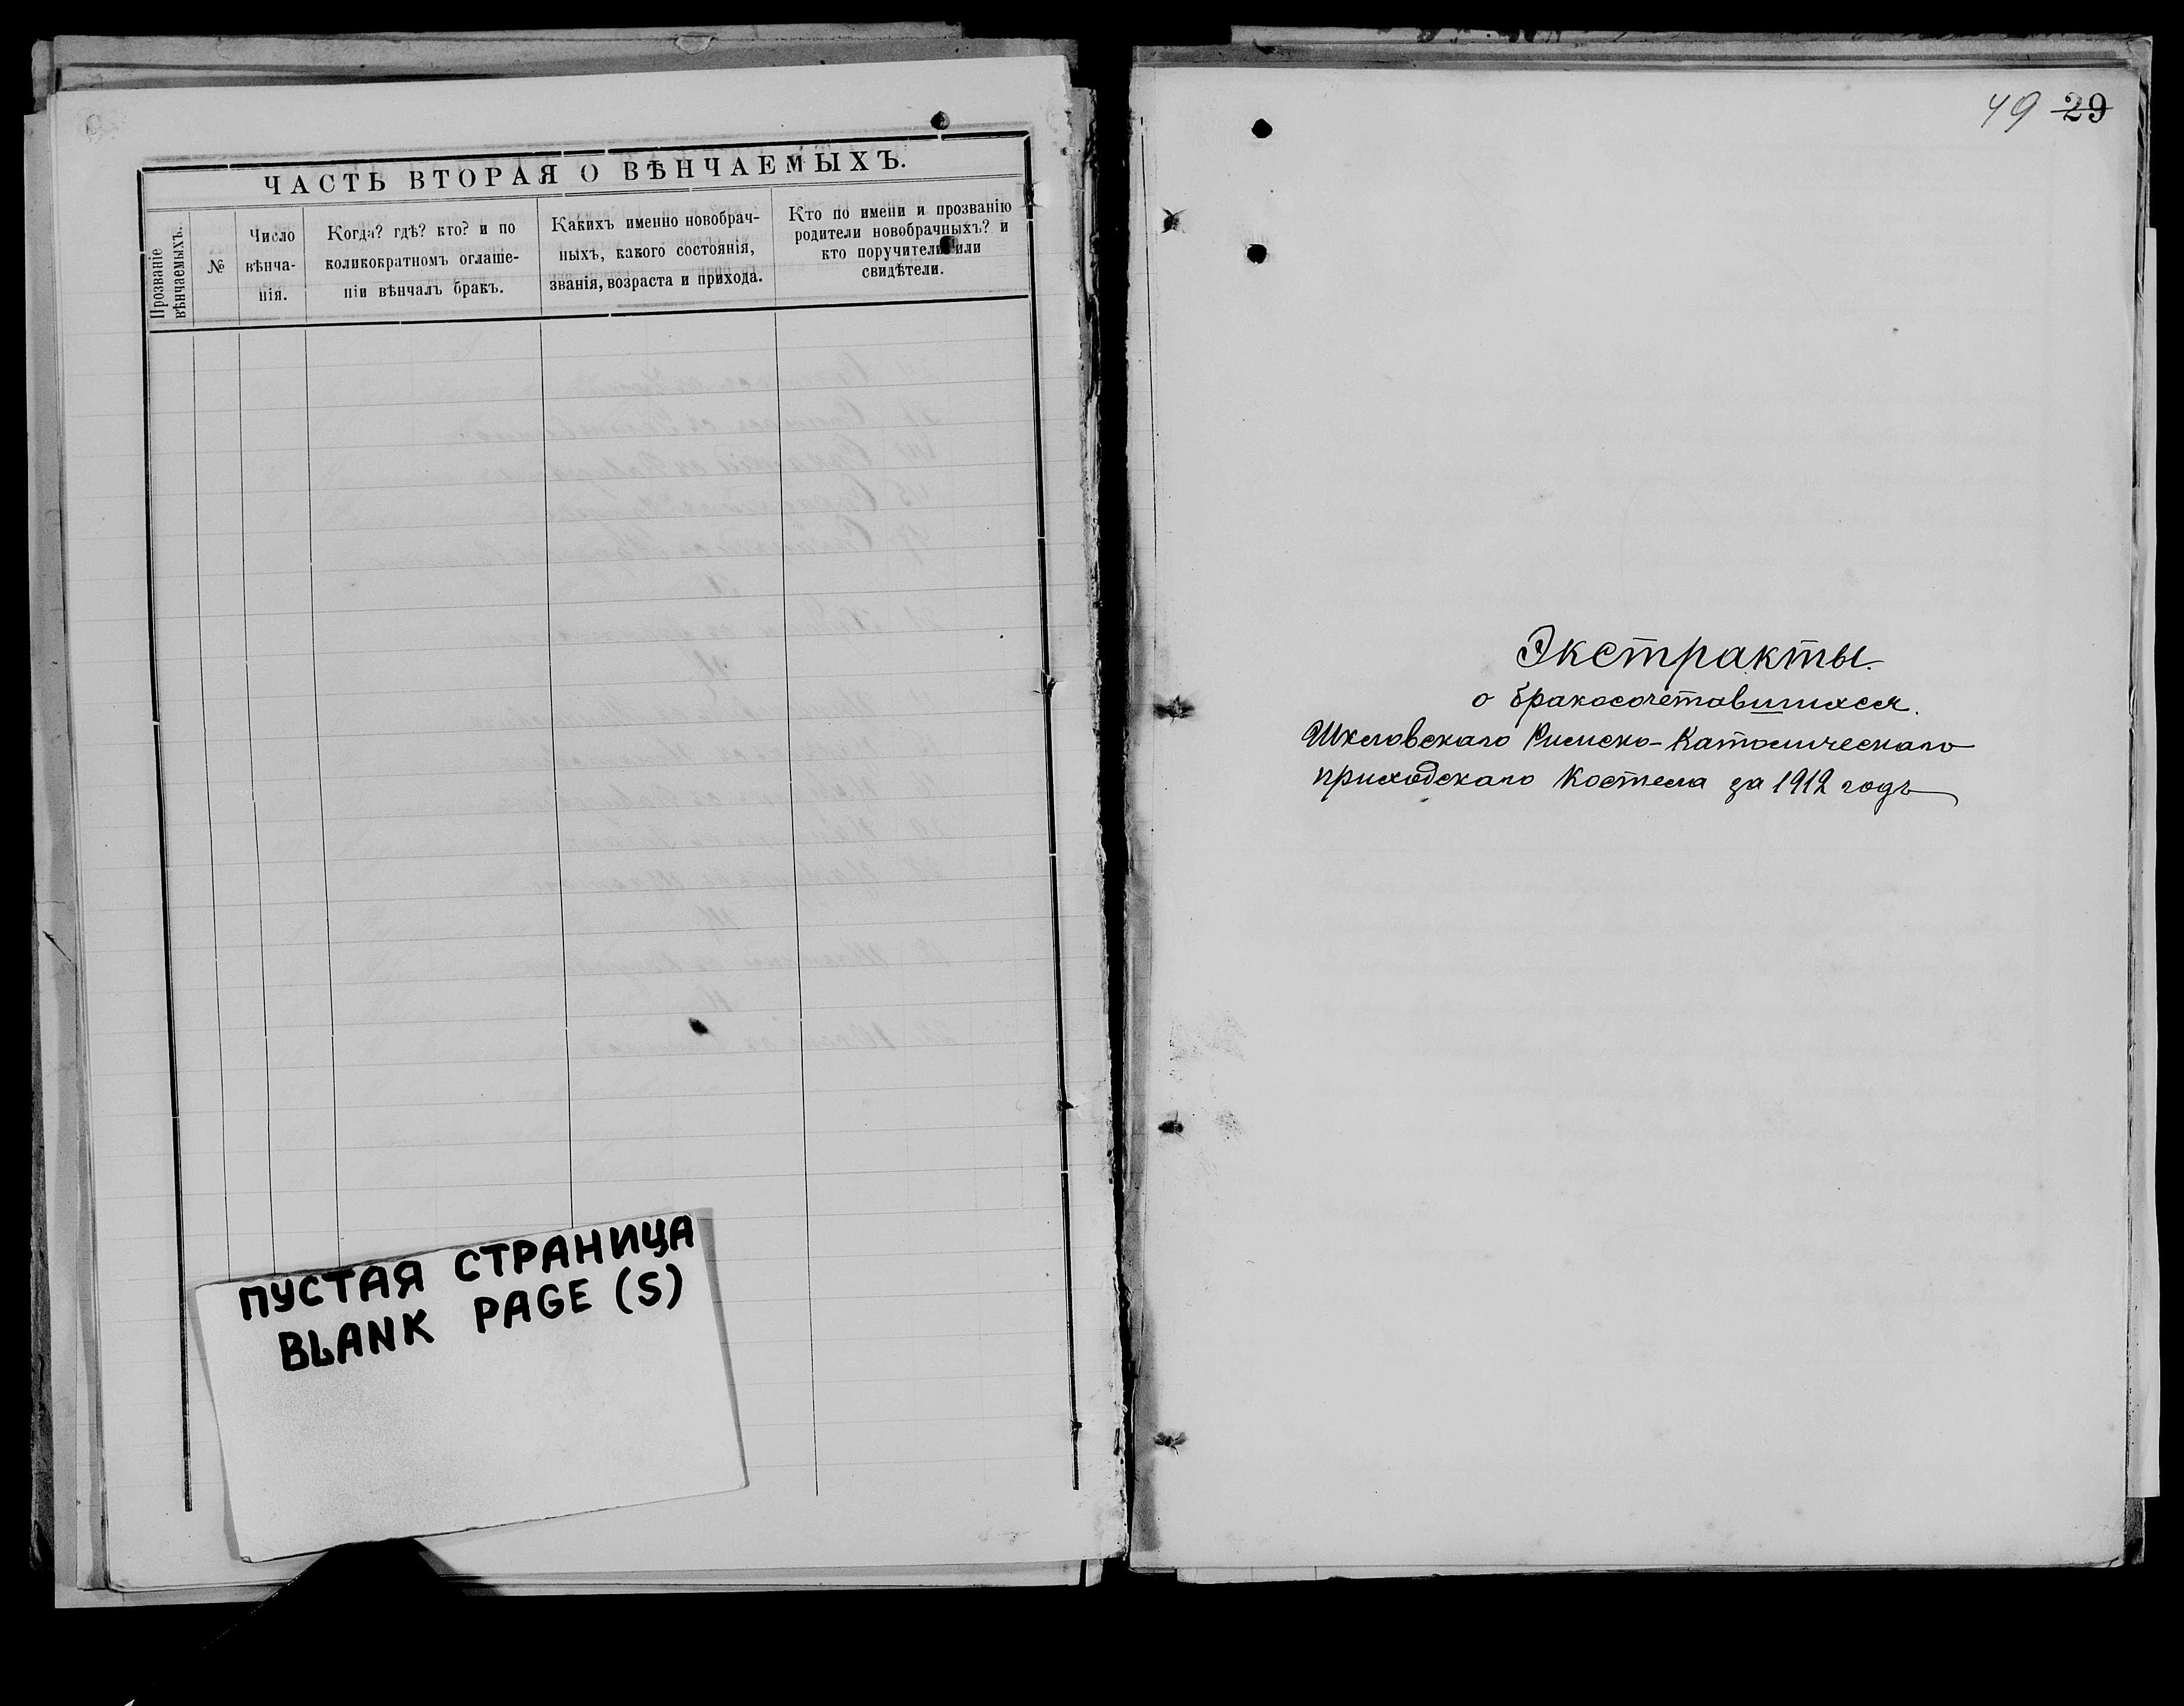 ЧАСТЬ ВТОРАЯ О ВѢНЧАЕМЫХЪ.
Прозваніе
вѣнчаемыхъ.
№
Число
вѣнча-
нія.
Когда? гдѣ? кто? и по
коликократномъ оглаше-
ніи вѣнчалъ бракъ.
Какихъ именно новобрач-
ныхъ, какого состоянія,
званія, возраста и прихода.
Кто по имени и прозванію
родители новобрачныхъ? и
кто поручители или
свидѣтели.
ПУСТАЯ СТРАНИЦА
BLANK PAGE (S)
49 29
Экстракты.
о бракосочетавшихся.
Шкловскаго Римско-Католическаго
приходскаго Костела за 1912 годъ